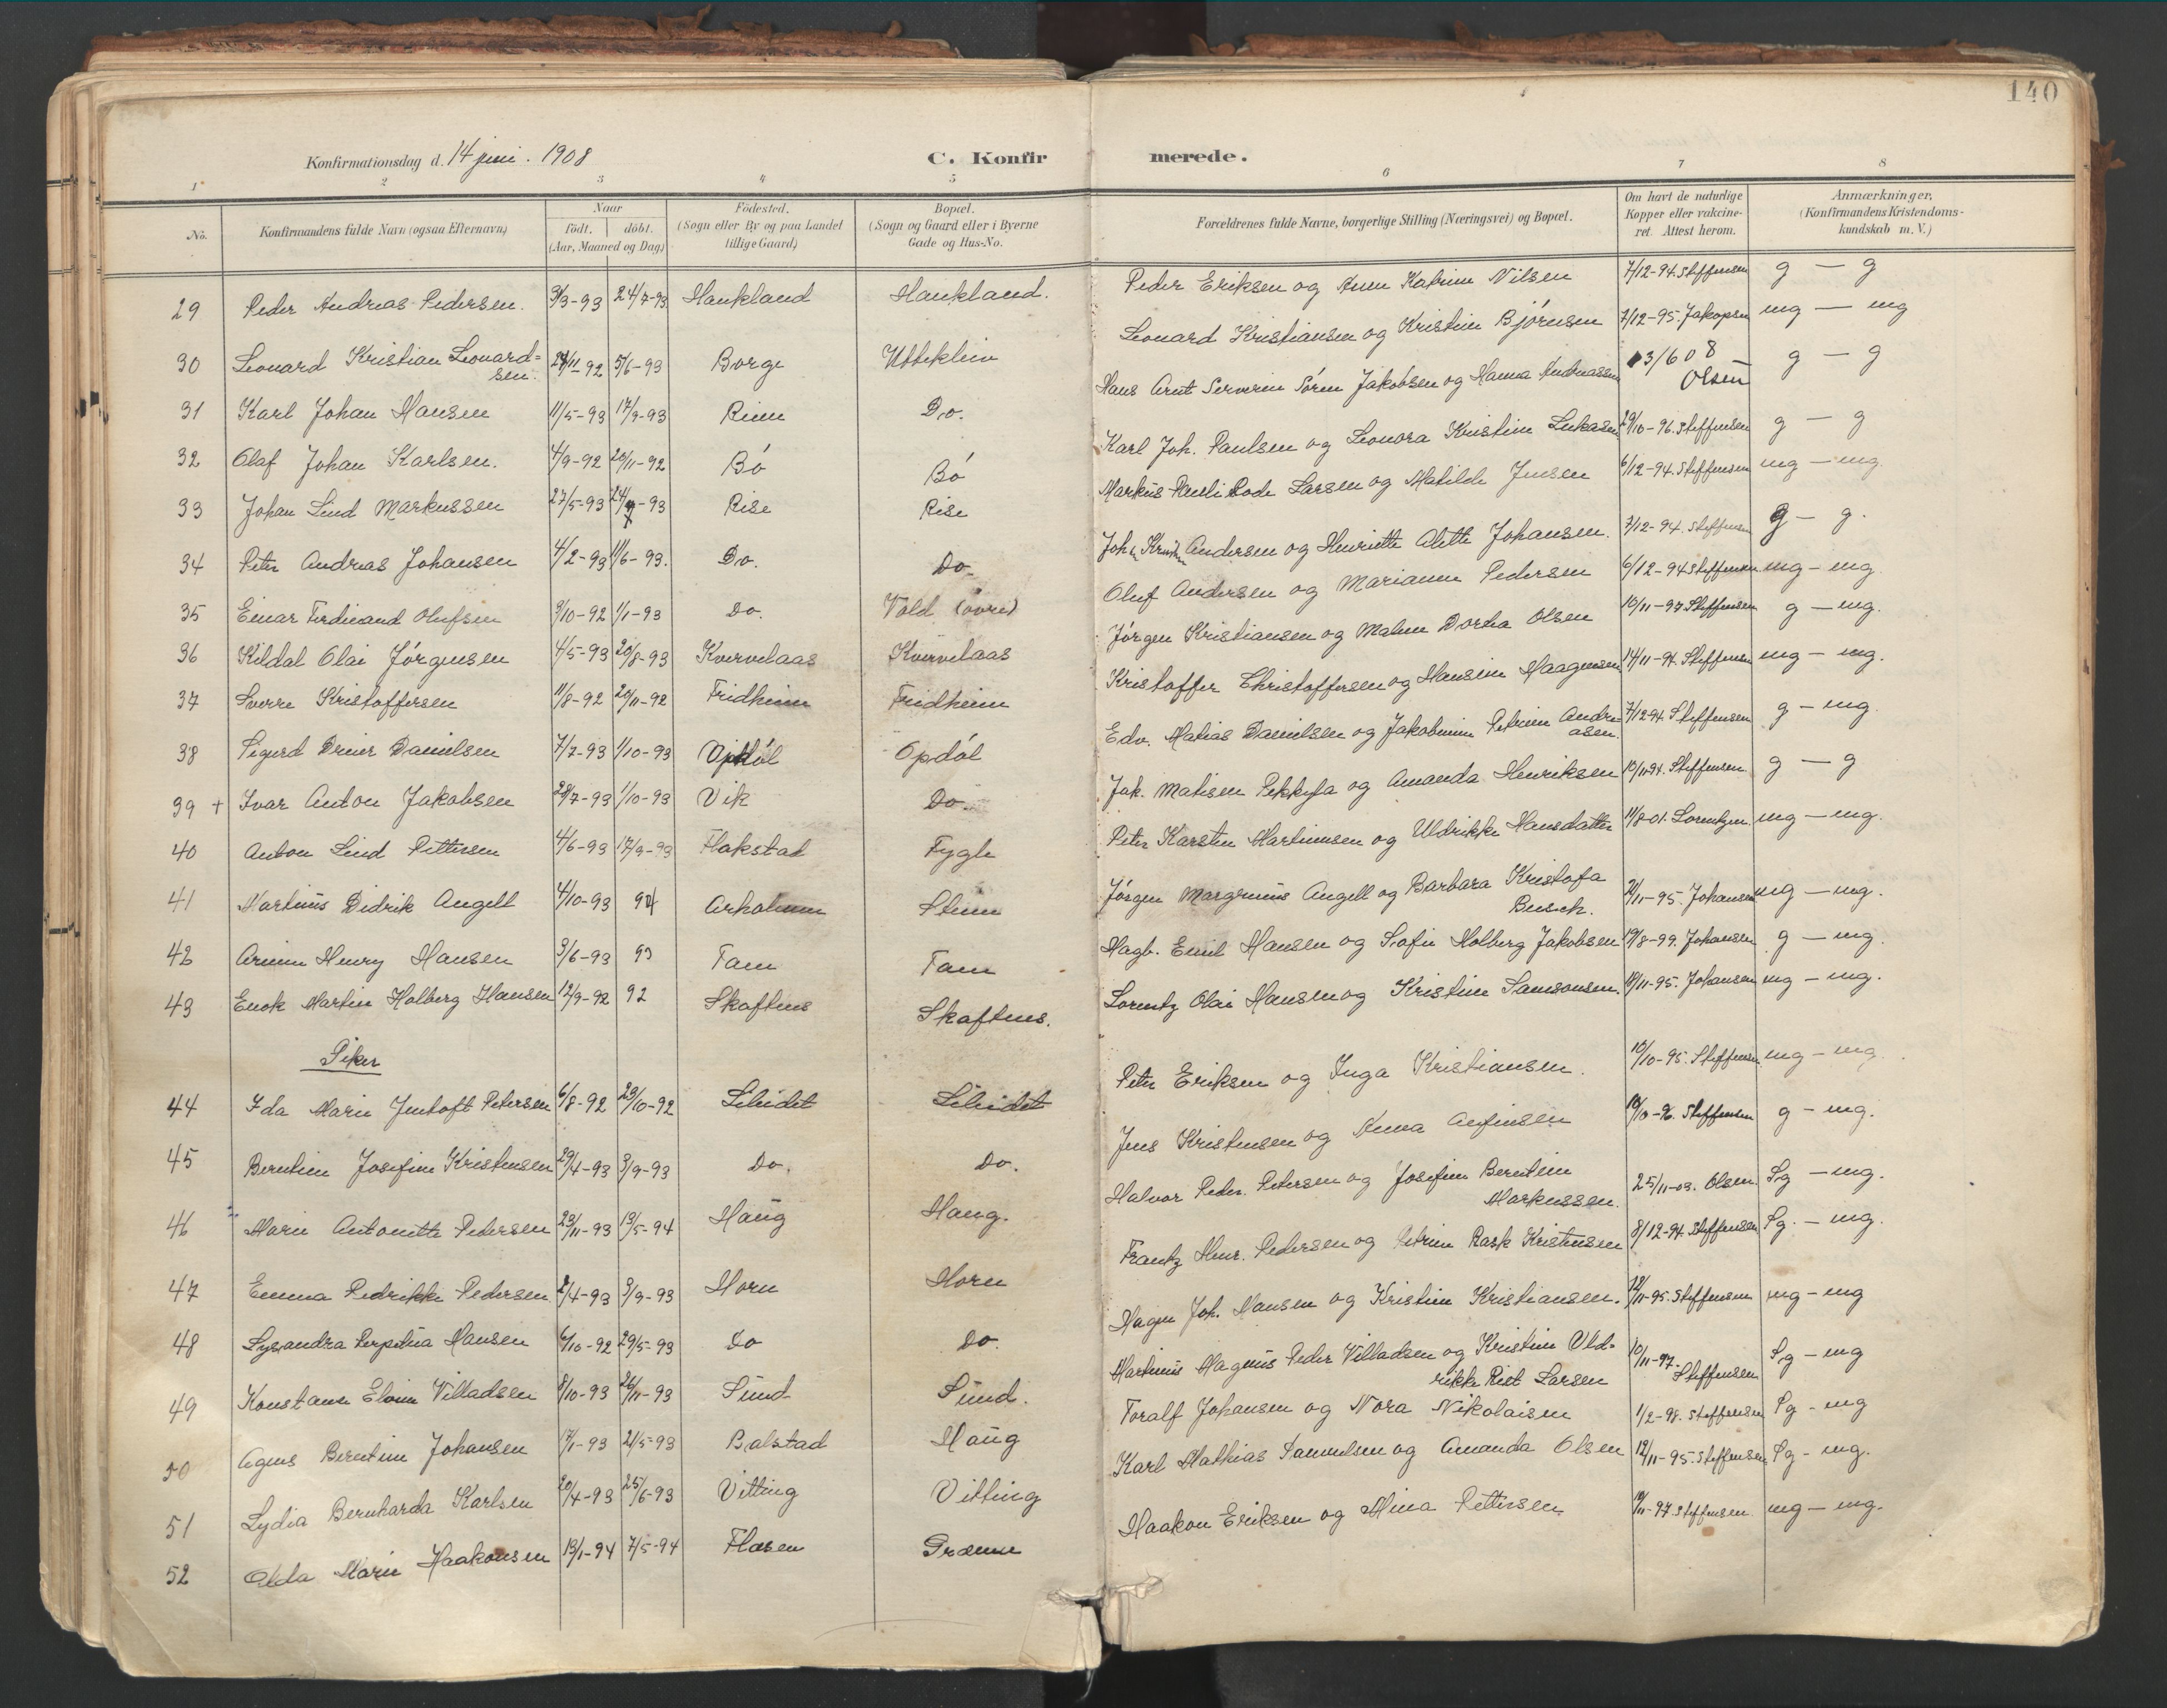 140
Konfirmationsdag d. 14 juni. 1908
C. Konfirmerede.
1 2 3 4 5 6 7 8
No.
Konfirmandens fulde Navn (ogsaa Efternavn)
Naar
födt. döbt.
(Aar, Maaned og Dag)
Födested.
(Sogn eller By og paa Landet
tillige Gaard)
Bopæl.
(Sogn og Gaard eller i Byerne
Gade og Hus-No.
Forældrenes fulde Navne, borgerlige Stilling (Næringsvei) og Bopæl.
Om havt de naturlige
Kopper eller vakcine-
ret. Attest herom.
Anmærkninger,
(Konfirmandens Kristendoms-
kundskab m.V.)
29 Peder Andreas Pedersen. 3/3-93 24/7-93 Haukland Haukland. Peder Eriksen og Anne Katrine Nilsen 7/12-94. Steffensen g — g
30 Leonard Kristian Leonard=
sen. 24/11-92 5/6-93 Borge Utteklein Leonard Kristiansen og Kristine Björnsen 7/12-95. Jakopsen mg — mg
31 Karl Johan Hansen 11/5-93 17/9-93 Do. Hans Arnt Serverin Sören Jakobsen og Hanna Andreassen 13/6 08 Olsen g — g
32 Olaf Johan Karlsen. 4/9-92 20/11-92 Bö Bö Karl Joh. Paulsen og Leonora Kristine Lukasen 29/10-96. Steffensen g — g
33 Johan Lind Markussen 27/5-93 -93 Rise Rise Markus Pauli Rode Larsen og Matilde Jensen 6/12-94. Steffensen mg — mg.
34 Peter Andreas Johansen 4/2-93 11/6-93. Do. Do. Joh. Andersen og Henriette Alette Johansen. 7/12-94. Steffensen g — g.
35 Einar Ferdinand Olufsen 3/10-92 1/1-93 Do. Vold (övre) Oluf Andersen og Marianne Pedersen 6/12-94 Steffensen mg — mg.
36 Kildal Olai Jörgensen 4/5-93 20/8-93 Kvervelaas Kvervelaas Jörgen Kristiansen og Malene Dorthea Olsen 10/11-97 Steffensen g — mg.
37 Sverre Kristoffersen 11/8-92 20/11-92 Fridheim Fridheim Kristoffer Christoffersen og Hansine Haagensen 14/11-94. Steffensen mg — mg.
38 Sigurd Danielsen 7/7-93 1/10-93 Opdöl Opdöl Edv. Matias Danielsen og Jakobmine Petrine Andre-
asen. 7/12 94. Steffensen g — mg.
39 + Ivar Anton Jakobsen 28/7-93 1/10-93 Vik Do. Jak. Matisen og Amanda Henriksen 10/11 94. Steffensen g — g
40 Anton Lind Pettersen 4/6-93 17/9-93 Flakstad Fygle Peter Karsten Martinusen og Uldrikke Hansdatter 11/8-01. Lorentzen mg — mg.
41 Martinus Didrik Angell 4/10-93 94 Arholmen Steine Jörgen Angell og Barbara Kristofa
Busch. -95. Johansen mg — mg.
42 Henry Hansen 3/6-93 93 Tam Tam Hagb. Emil Hansen og Sofie Holberg Jakobsen 19/8-99. Johansen g — mg.
43 Enok Martin Holberg Hansen 12/9-92 92 Skaftnes Skaftnes. Lorentz Olai Hansen og Kristine Samsonsen. 18/11-95. Johansen mg — mg.
Piker
44 Ida Marie Jentoft Petersen 6/8-92 29/10-92 Leknidet Leknidet Peter Eriksen og Inga Kristiansen. 10/10-95. Steffensen mg — mg.
45 Berntine Josefine Kristensen 29/4-93 3/9-93 Do. Do. Jens Kristensen og Anna Anfinsen -96. Steffensen g — mg.
46 Marie Antonette Pedersen 23/11-93 13/5-94 Haug Haug. Halvor Peder Petersen og Josefine Berntine
Markussen. 25/11-03. Olsen. Sg — mg.
47 Emma Pedrikke Pedersen 2/4-93 3/9-93 Horn Horn Frantz Henr. Pedersen og Petrine Rask Kristensen 8/12-94 Steffensen Sg. — mg.
48 Lysandra Perpetua Hansen 6/10-92 29/5-93 Do Do. Hagen Joh. Hansen og Kristine Kristiansen. 18/11-95. Steffensen mg — mg
49 Konstanse Elvine Villadsen 8/10-93 26/11-93 Sund Sund. Martinus Magnus Peder Villadsen og Kristine Uld=
rikke Larsen 10/11-97. Steffensen Sg — mg
50 Agnes Berntine Johansen 17/1-93 21/5-93 Balstad Haug Toralf Johansen og Nora Nikolaisen 1/2-98. Steffensen Sg — mg
51 Lydia Bernharda Karlsen 20/4-93 25/6-93 Vitting Vitting Karl Mathias Samuelsen og Amanda Olsen 12/11-95. Steffensen Sg — mg.
52 Alda Marie Haakonsen 13/1-94 7/5-94 Flæsen Haakon Eriksen og Mina Pettersen -97. Steffensen mg — mg.